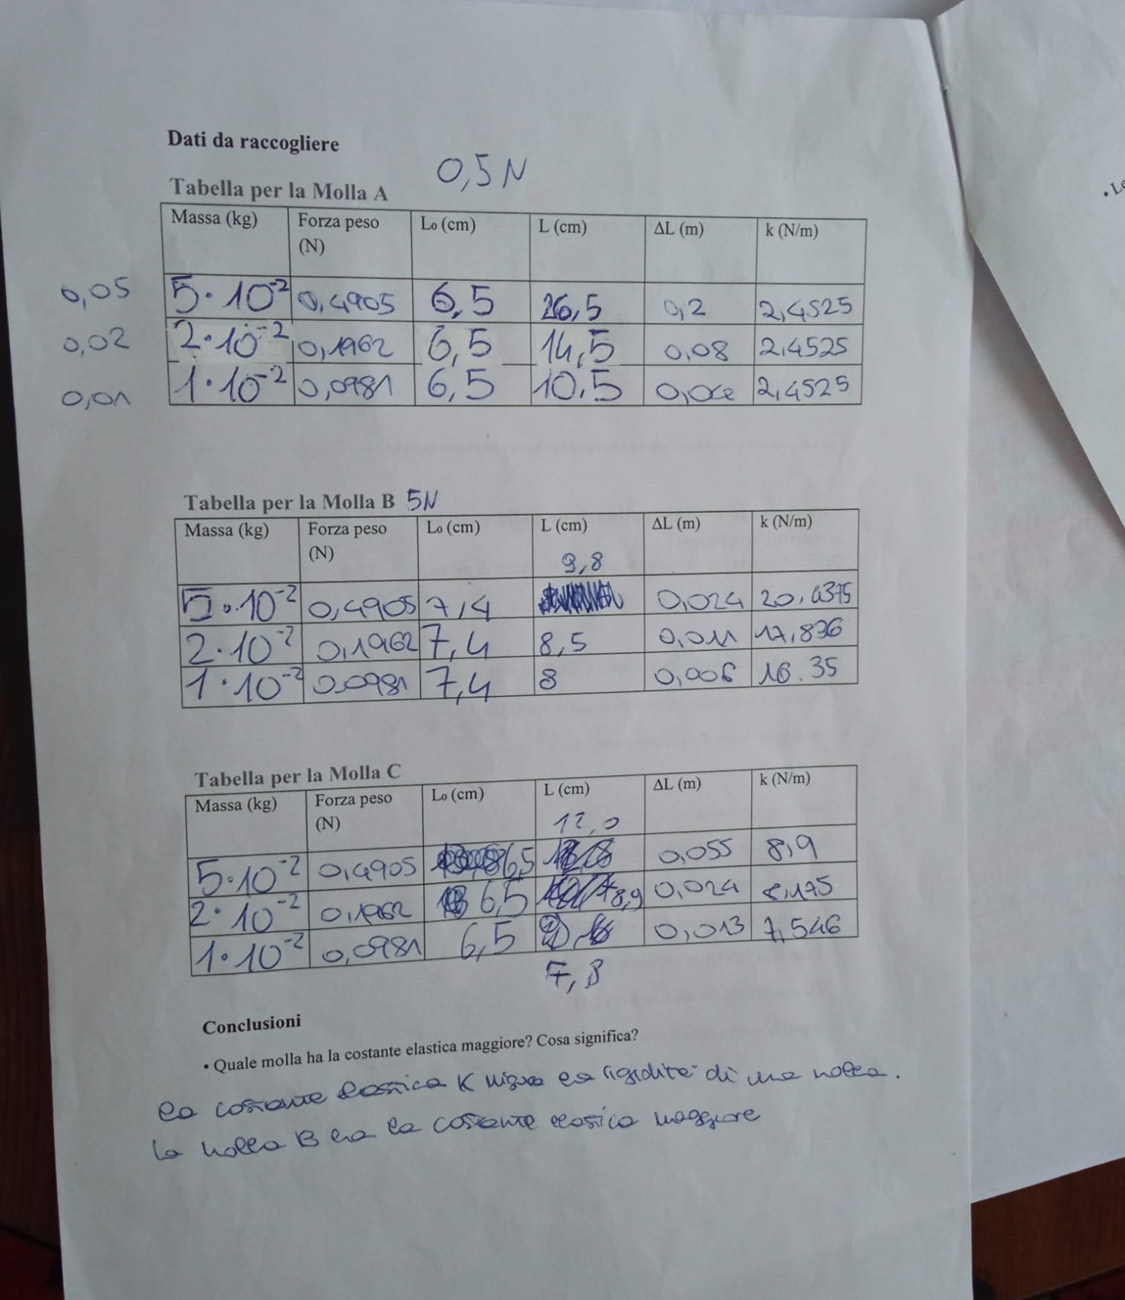 Dati da raccogliere
0,5 N
Tabella per la Molla A
Massa (kg) Forza peso (N) L₀ (cm) L (cm) ΔL (m) k (N/m)
0,05 5·10⁻² 0,4905 6,5 26,5 0,2 2,4525
0,02 2·10⁻² 0,1962 6,5 14,5 0,08 2,4525
0,01 1·10⁻² 0,0981 6,5 10,5 0,04 2,4525
Tabella per la Molla B 5N
Massa (kg) Forza peso (N) L₀ (cm) L (cm) ΔL (m) k (N/m)
9,8
5·10⁻² 0,4905 7,4 0,024 20,4375
2·10⁻² 0,1962 7,4 8,5 0,011 17,836
1·10⁻² 0,0981 7,4 8 0,006 16.35
Tabella per la Molla C
Massa (kg) Forza peso (N) L₀ (cm) L (cm) ΔL (m) k (N/m)
12,0
5·10⁻² 0,4905 6,5 0,055 8,9
2·10⁻² 0,1962 6,5 8,9 0,024 8,175
1·10⁻² 0,0981 6,5 0,013 7,546
7,8
Conclusioni
• Quale molla ha la costante elastica maggiore? Cosa significa?
La costante elastica K misura la rigidità di una molla.
La molla B ha la costante elastica maggiore